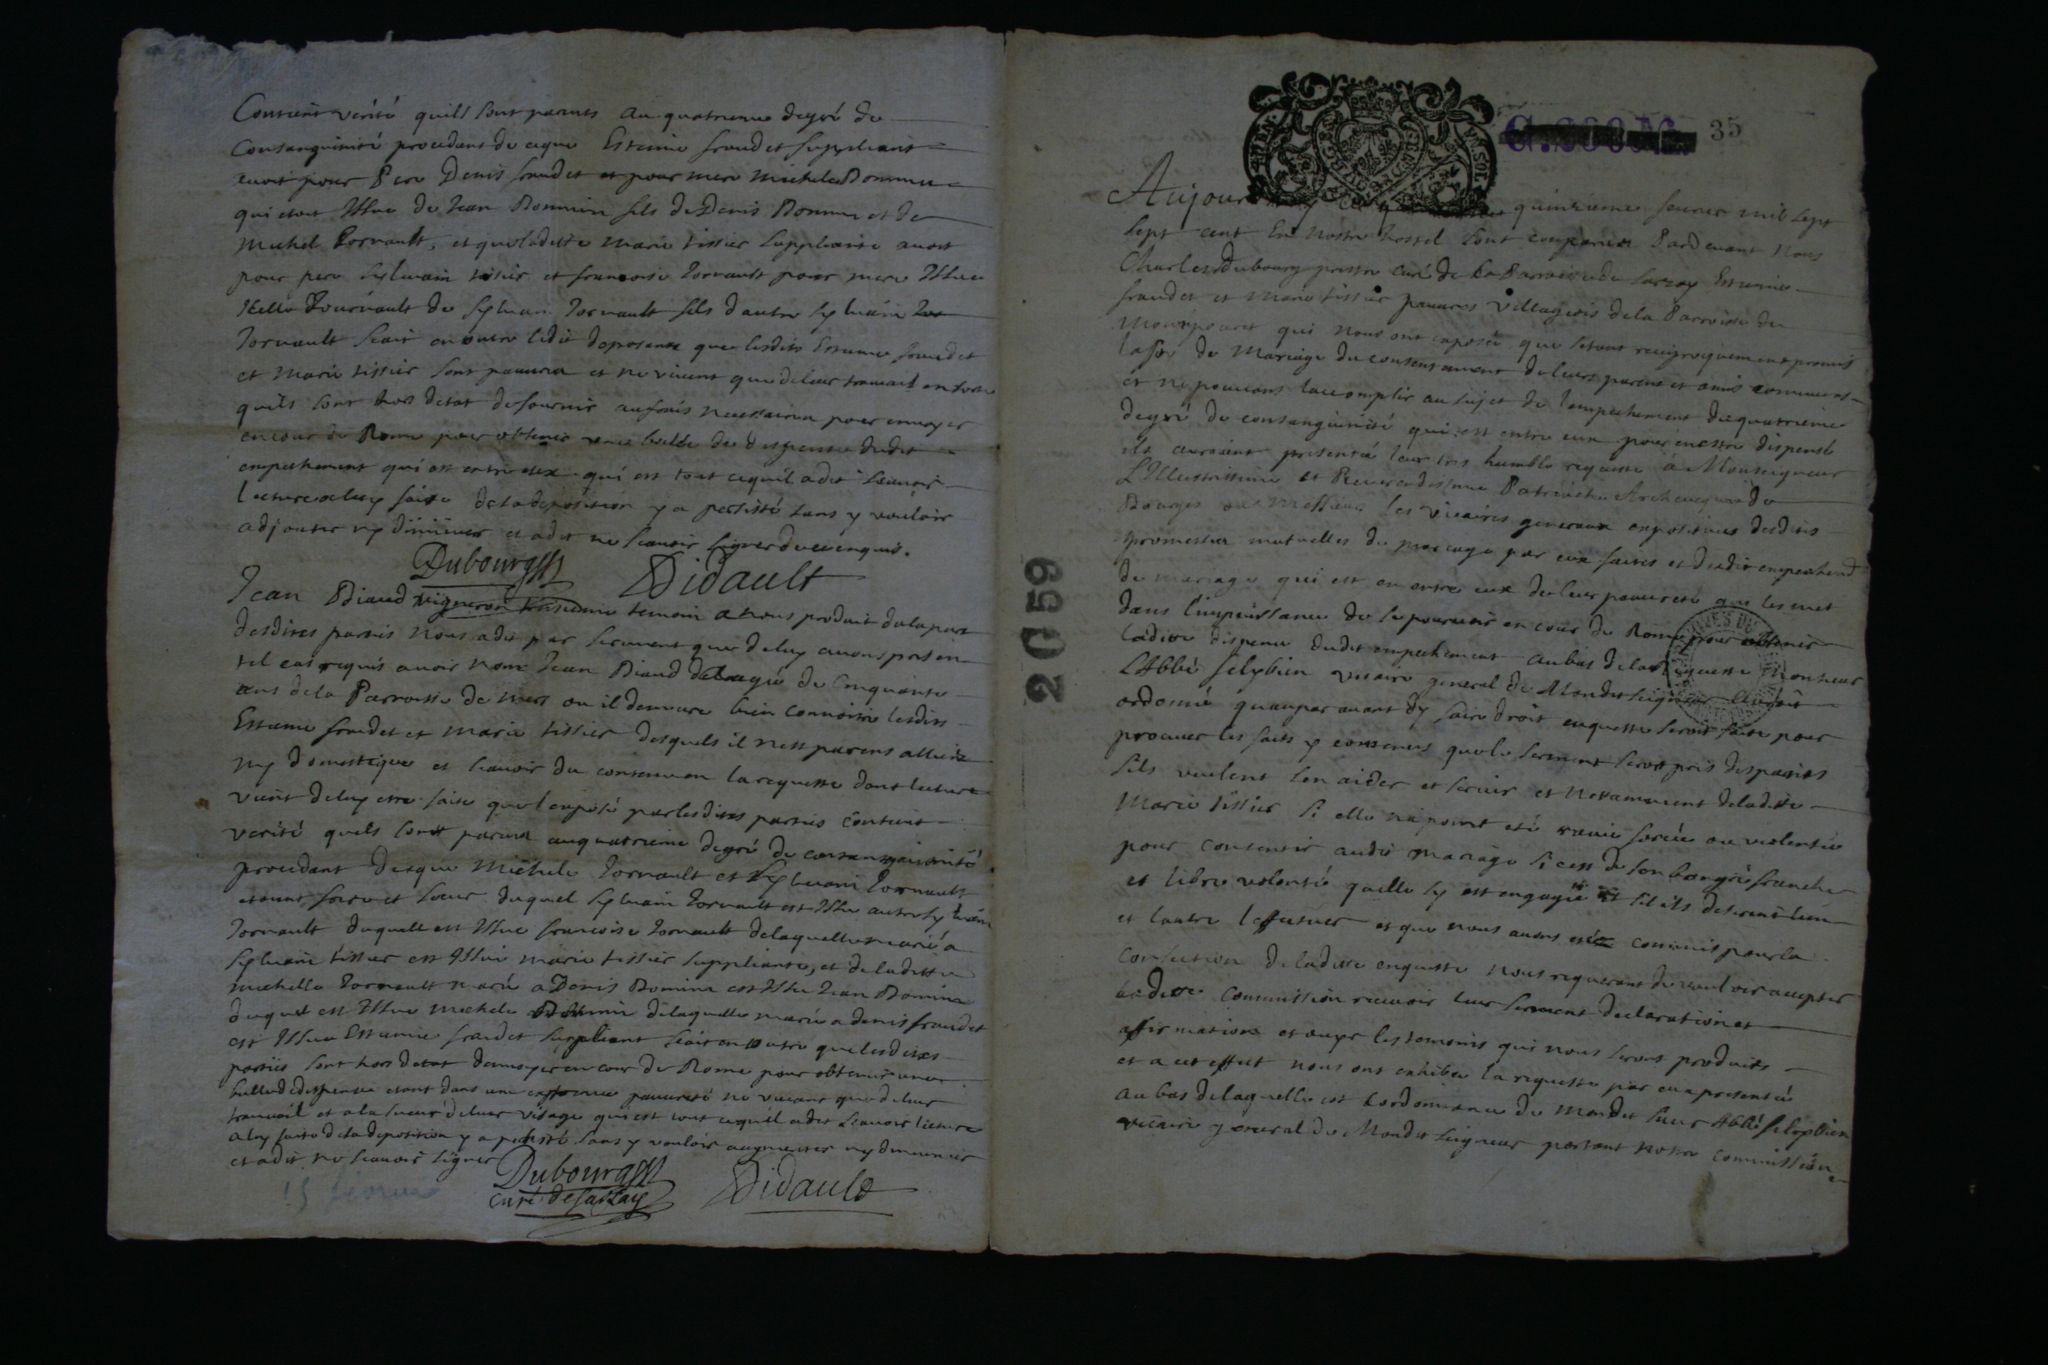 Contient vérité quils sont parents au quatrieme degré de
Consanguinité procedant de ceque Estienne fraudet suppliant
avoit pour Pere Denis fraudet et pour mere Michele Bonnin
qui etoit Issue de Jean Bonnin fils de Denis Bonnin et de
Michel Tornault, et que ladette Marie tissier suppliante avoit
pour pere Sylvain tissier et francoise Tornault pour mere Issue
Icelle Tournault de Sylvain Tornault fils d'autre Sylvain Tor
Tornault scait en outre ledit deposant que lesdits Estienne fraudet
et Marie tissier sont pauvres et ne vivent que de leur travail en sorte
quils sont hors detat de fournir aux frais necessaires pour envoyer
en cour de Rome pour obtenir une bulle de dispense dudit
empechement qui est entre eux qui est tout cequil a dit scavoir
lecture a luy faite de sa deposition y a persisté sans y vouloir
adjouter ny diminuer et a dit ne scavoir signer de ce enquis.
Dubourg Didault
Jean Biaud vigneron troisieme temoin a nous produit de la part
desdites parties nous a dit par serment que de luy avons pris en
tel cas requis avoir nom Jean Biaud agé de Cinquante
ans de la Parroisse de mers ou il demeure bien connoitre lesdits
Estienne fraudet et Marie tissier desquels il nest parens alliez
ny domestique et scavoir du contenu en la requeste dont lecture
vient de luy estre faite que l'exposé par lesdites parties contient
verité quils sont parens au quatrieme degré de consanguinité
procedant de ceque Michele Tornault et Sylvain Tornault
etoient frere et soeur duquel Sylvain Tornault est Issu autre Sylvain
Tornault duquel est Issue francoise Tornault de laquelle mariée a
Sylvain tissier est Issue marie tissier suppliante, et de ladette
michelle Tornault mariée a Denis Bonnin est Issu Jean Bonnin
duquel est Issue michele Bonnin de laquelle mariée a denis fraudet
est Issu Estienne fraudet suppliant scait en outre que lesdites
parties sont hors detat denvoyer en cour de Rome pour obtenir une
bulle de dispense etant dans une extreme pauvreté ne vivant que de leur
travail et a la sueur de leur visage qui est tout cequil a dit scavoir lecture
a luy faite de sa deposition y a persisté sans y vouloir augmenter ny diminuer
et a dit ne scavoir signer
Dubourg Didault
Curé de Sarzay
15 fevrier
GEN. VN SOL
35
2 G 59
Aujourdhuy quinzieme fevrier mil sept
sept cent En nostre hostel sont comparus Pardevant nous
Charles Dubourg prestre curé de la Parroisse de Sarzay Estienne
fraudet et Marie tissier pauvres villageois de la Parroisse de
Montpouret qui nous ont exposé que sétant reciproquement promis
la foy de Mariage du consentement de leurs parens et amis communs
et ne pouvans laccomplir au sujet de lempechement du quatrieme
degré de consanguinité qui est entre eux pour en estre dispensé
ils auroient presenté leur tres humble requeste à Monseigneur
L'Illustrissime et Reverendissime Patriarche Archeveque de
Bourges ou Messieurs les vicaires generaux expositive desdites
promesses mutuelles de mariage par eux faites et dudit empechement
de mariage qui est en entre eux de leur pauvreté qui les met
dans limpuissance de se pourvoir en cour de Rome pour obtenir
ladite dispense dudit empechement au bas de la requeste Monsieur
LAbbé felybien vicaire general de Mondit seigneur auroit
ordonné quauparavant dy faire droit enqueste seroit faite pour
prouver les faits y contenus que le serment seroit pris des parties
sils veulent sen aider et servir et notamment de ladite
Marie tissier si elle na point eté ravie forcée ou violentée
pour consentir audit mariage si cest de son bon gré franche
et libre volonté quelle sy est engagée et sils desirent lun
et lautre leffectuer et que nous avons esté commis pour la
confection de ladite enqueste nous requerant de vouloir accepter
ladite commission recevoir leur serment declaration et
affirmation et ouyr les temoins qui nous seront produits
et a cet effet nous ont exhibé la requeste par eux presentée
au bas de laquelle est lordonnance de Mondit sieur Abbé felybien
vicaire general de Mondit seigneur portant notre commission